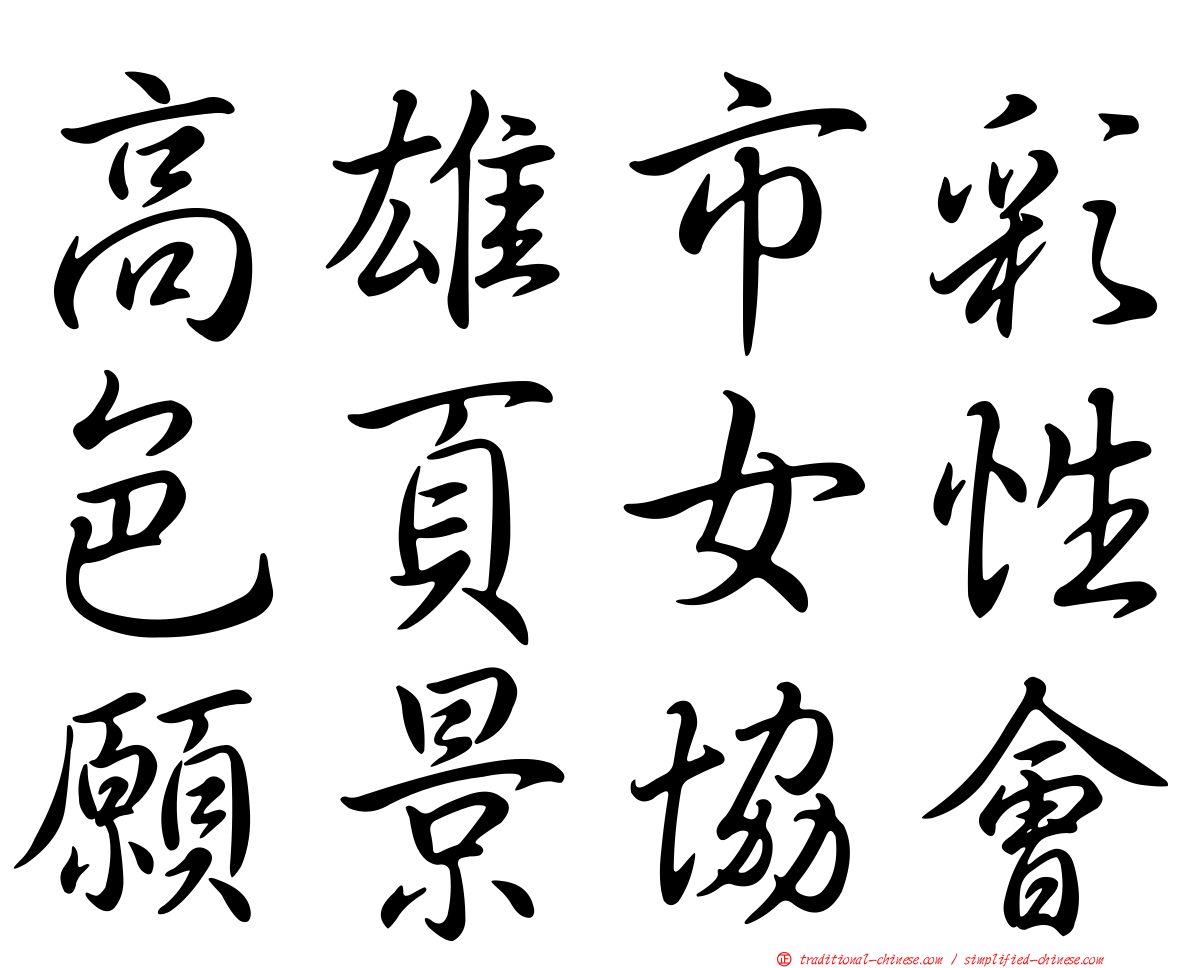 高雄市彩
色頁女性
願景協會
㊣ traditional-chinese.com / simplified-chinese.com